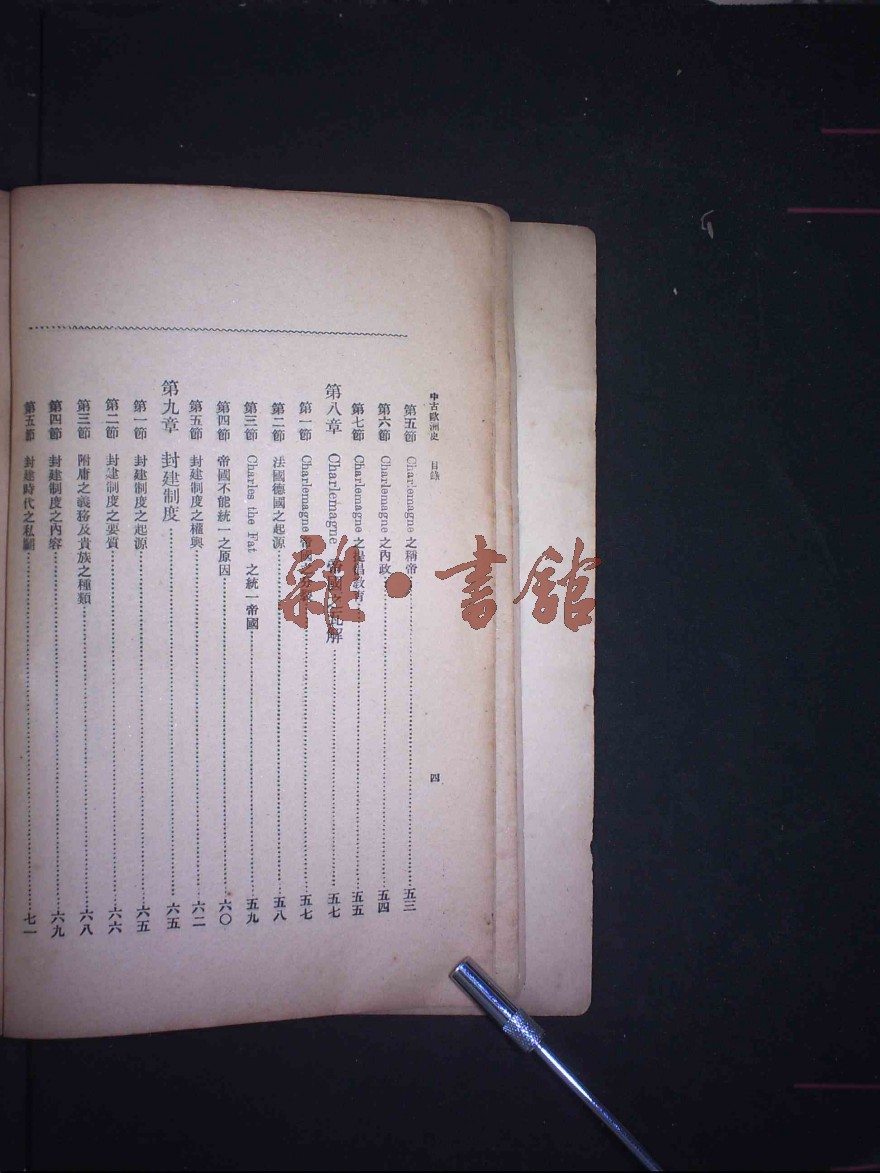 中古歐洲史 目錄 四
第五節 Charlemagne 之稱帝 五三
第六節 Charlemagne 之內政 五四
第七節 Charlemagne 之提倡教育 五五
第八章 Charlemagne 帝國之瓦解 五七
第一節 Charlemagne 帝國之 五七
第二節 法國德國之起源 五八
第三節 Charles the Fat 之統一帝國 五九
第四節 帝國不能統一之原因 六〇
第五節 封建制度之權輿 六二
第九章 封建制度 六五
第一節 封建制度之起源 六五
第二節 封建制度之要質 六六
第三節 附庸之義務及貴族之種類 六八
第四節 封建制度之內容 六九
第五節 封建時代之私鬬 七一
雜·書館